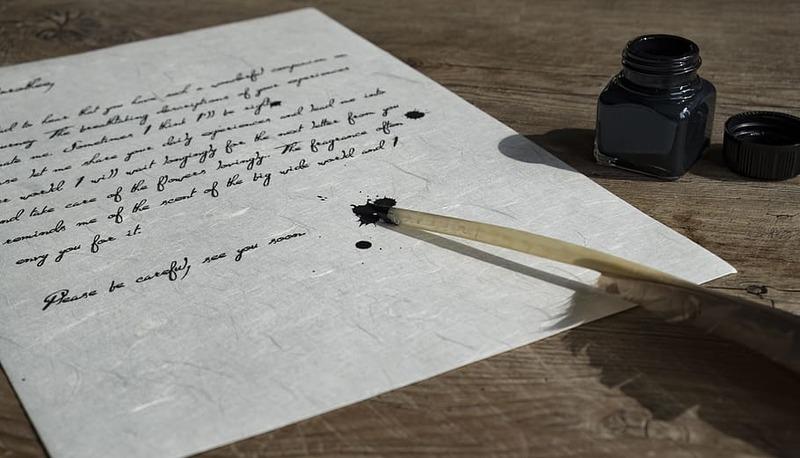 to hear that you have had a wonderful companion
The breathtaking descriptions of your experiences
me. Sometimes I think I'll be right
let me share your daily experiences and lead me into
world. I will wait longingly for the next letter from you
and take care of the flowers lovingly. The fragrance often
reminds me of the scent of the big wide world and I
envy you for it.
Please be careful, see you soon